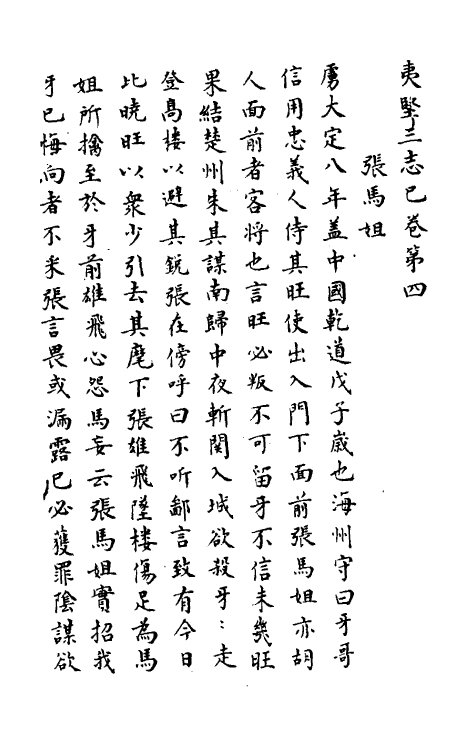 夷堅三志己卷第四
張馬姐
虜大定八年盖中國乾道戊子嵗也海州守曰牙哥
信用忠義人侍其旺使出入門下面前張馬姐亦胡
人面前者客将也言旺必叛不可留牙不信未幾旺
果結楚州朱其謀南歸中夜斬関入城欲殺牙：走
登髙樓以避其鋭張在傍呼曰不听鄙言致有今日
比曉旺以衆少引去其麾下張雄飛墜楼傷足為馬
姐所擒至於牙前雄飛心怨馬妄云張馬姐實招我
牙已悔向者不采張言畏或漏露己必獲罪隂謀欲